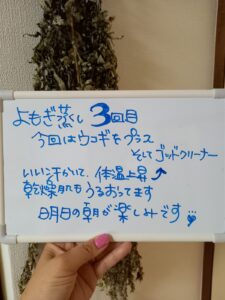 よもぎ蒸し 3回目
今回はウコギをプラス
そしてゴッドクリーナー
いい汗かいて、体温上昇↑
乾燥肌もうるおってます
明日の朝が楽しみです